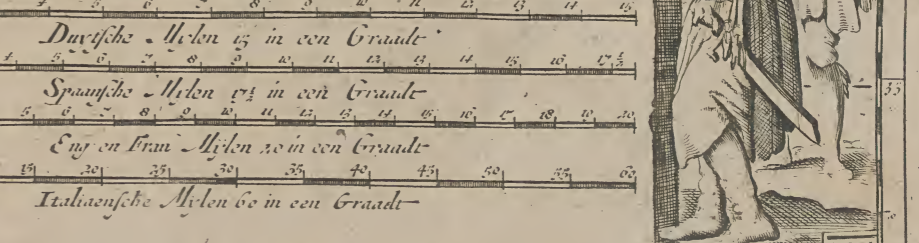 7 8 9 10 11 12 13 14 15
Duytsche Mylen 15 in een Graadt
4 5 6 7 8 9 10 11 12 13 14 15 16 17½
Spaansche Mylen 17½ in een Graadt
5 6 7 8 9 10 11 12 13 14 15 16 17 18 19 20
Eng en Fran Mijlen 20 in een Graadt
15 20 25 30 35 40 45 50 55 60
Italiaensche Mylen 60 in een Graadt
33